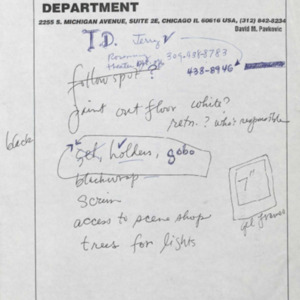 DEPARTMENT
2255 S. MICHIGAN AVENUE, SUITE 2E, CHICAGO IL 60616 USA, (312) 842-
David M. Pavkovic
I.D. Jerry
Rosemary 309-438-8783
theater
438-8946
followspot?
paint out floor white?
retn.? who's responsible
black
gel, holders, gobo
blackwrap
scrim
access to scene shop
trees for lights
7"
gel frames